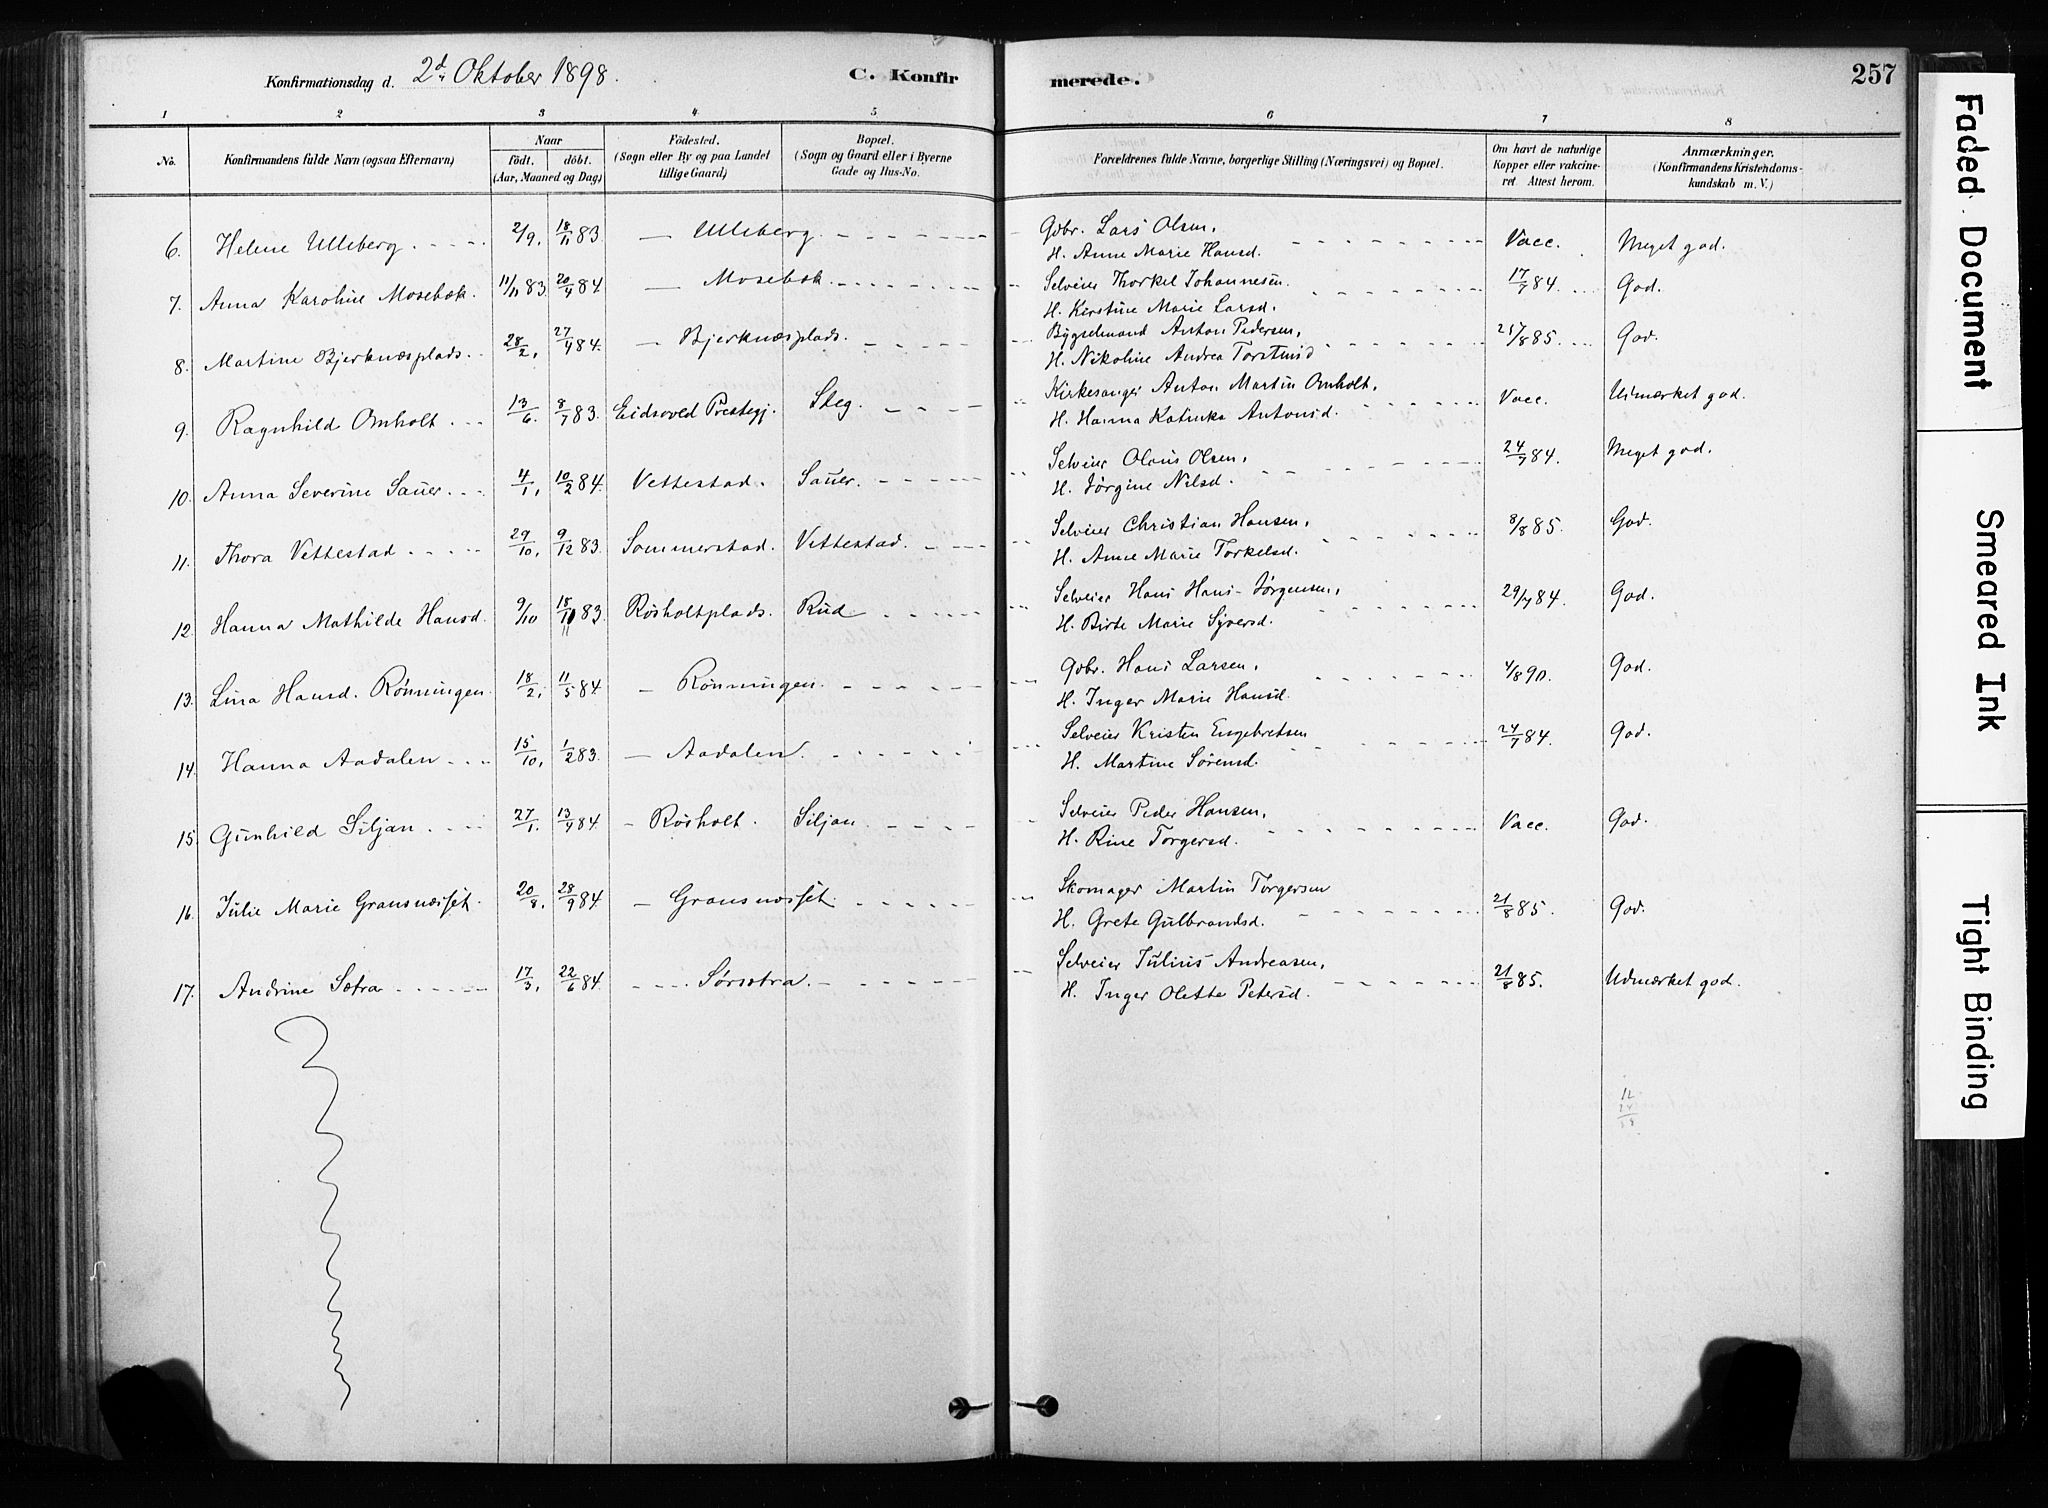 Konfirmationsdag d. 2d. Oktober 1898.
C. Konfir merede.
257
1 2 3 4 5 6 7 8
No.
Konfirmandens fulde Navn (ogsaa Efternavn)
Naar
födt. döbt.
(Aar, Maaned og Dag)
Födested.
(Sogn eller By og paa Landet
tillige Gaard)
Bopæl.
(Sogn og Gaard eller i Byerne
Gade og Hus-No.
Forældrenes fulde Navne, borgerlige Stilling (Næringsvei) og Bopæl.
Om havt de naturlige
Kopper eller vakcine-
ret. Attest herom.
Anmærkninger.
(Konfirmandens Kristendoms-
kundskab m. V.)
6. Helene Ulleberg 2/9. 18/11 83 — Ulleberg. Gbr. Lars Olsen, Vacc. Meget god.
H. Anne Marie Hansd.
7. Anna Karoline Mosebæk. 11/11 83. 20/4 84. — Mosebæk. Selveier Thorkel Johannesen. 17/7 84. God.
H. Kirstine Marie Larsd.
8. Martine Bjerknæsplads. 28/2. 27/4 84. — Bjerknæsplads. Bygselmand Anton Pedersen, 21/8 85. God.
H. Nikoline Andrea Torstensd
9. Ragnhild Omholt 13/6. 8/7 83. Eidsvold Prestegj. Steg. Kirkesanger Anton Martin Omholt, Vacc. Udmærket god.
H. Hanna Katinka Antonsd.
10. Anna Severine Sauer. 4/1. 10/2 84. Vettestad. Sauer. Selveier Olaus Olsen, 24/7 84. Meget god.
H. Jørgine Nilsd.
11. Thora Vettestad 29/10. 9/12 83. Sommerstad. Vettestad. Selveier Christian Hansen, 8/8 85. God.
H. Anne Marie Torkelsd.
12. Hanna Mathilde Hansd. 9/10 18/11 83. Røsholtplads. Rud. Selveier Hans Hans-Jørgensen, 29/7 84. God.
H. Birte Marie Syversd.
13. Lina Hansd. Rønningen. 18/2. 11/5 84 — Rønningen. Gbr. Hans Larsen, 4/8 90. God.
H. Inger Marie Hansd.
14. Hanna Aadalen 15/10. 1/2 83. — Aadalen. Selveier Kristen Engebretsen 24/7 84. God.
H. Martine Sørensd.
15. Gunhild Siljan. 27/1. 13/4 84. — Røsholt. Siljan. Selveier Peder Hansen, Vacc. God.
H. Rine Torgersd.
16. Julie Marie Gransnæsset. 20/8. 28/9 84. — Gransnæsset. Skomager Martin Torgersen 21/8 85. God.
H. Grete Gulbrandsd.
17. Andrine Sætra 17/3. 22/6 84. Sørsætra. Selveier Julius Andreasen, 21/8 85. Udmærket god.
H. Inger Olette Petersd.
Faded Document
Smeared Ink
Tight Binding